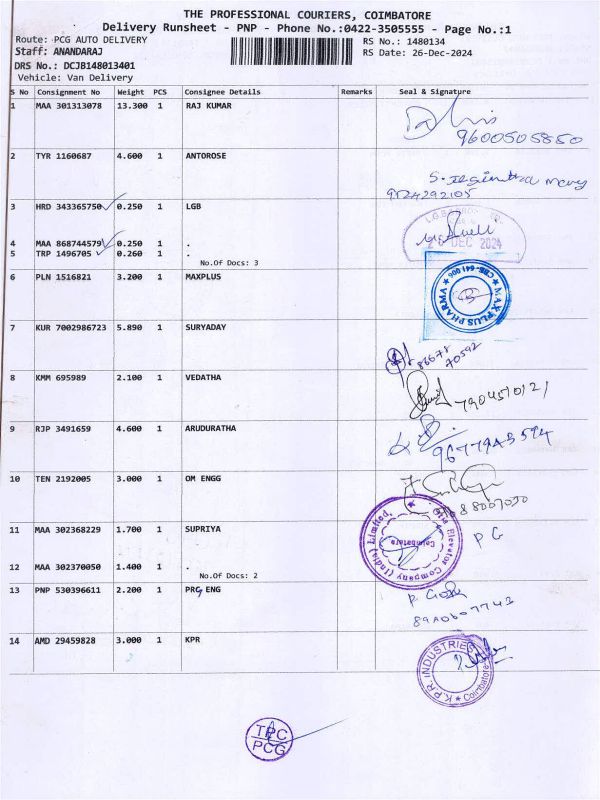 THE PROFESSIONAL COURIERS, COIMBATORE
Delivery Runsheet - PNP - Phone No.:0422-3505555 - Page No.:1
Route: PCG AUTO DELIVERY
RS No.: 1480134
Staff: ANANDARAJ
RS Date: 26-Dec-2024
DRS No.: DCJB148013401
Vehicle: Van Delivery
S No Consignment No Weight PCS Consignee Details Remarks Seal & Signature
1 MAA 301313078 13.300 1 RAJ KUMAR
9600505850
2 TYR 1160687 4.600 1 ANTOROSE
9124292105
3 HRD 343365750 0.250 1 LGB
4 MAA 868744579 0.250 1 .
26 DEC 2024
5 TRP 1496705 0.260 1 .
No.Of Docs: 3
6 PLN 1516821 3.200 1 MAXPLUS
MAX PLUS PHARMA CBE-641 006
7 KUR 7002986723 5.890 1 SURYADAY
8 KMM 695989 2.100 1 VEDATHA
7904510121
9 RJP 3491659 4.600 1 ARUDURATHA
10 TEN 2192005 3.000 1 OM ENGG
11 MAA 302368229 1.700 1 SUPRIYA
Elevator Company (India) Limited.
Coimbatore
PG
12 MAA 302370050 1.400 1 .
No.Of Docs: 2
13 PNP 530396611 2.200 1 PRG ENG
14 AMD 29459828 3.000 1 KPR
K.P.R. INDUSTRIES Coimbatore
TPC
PCG